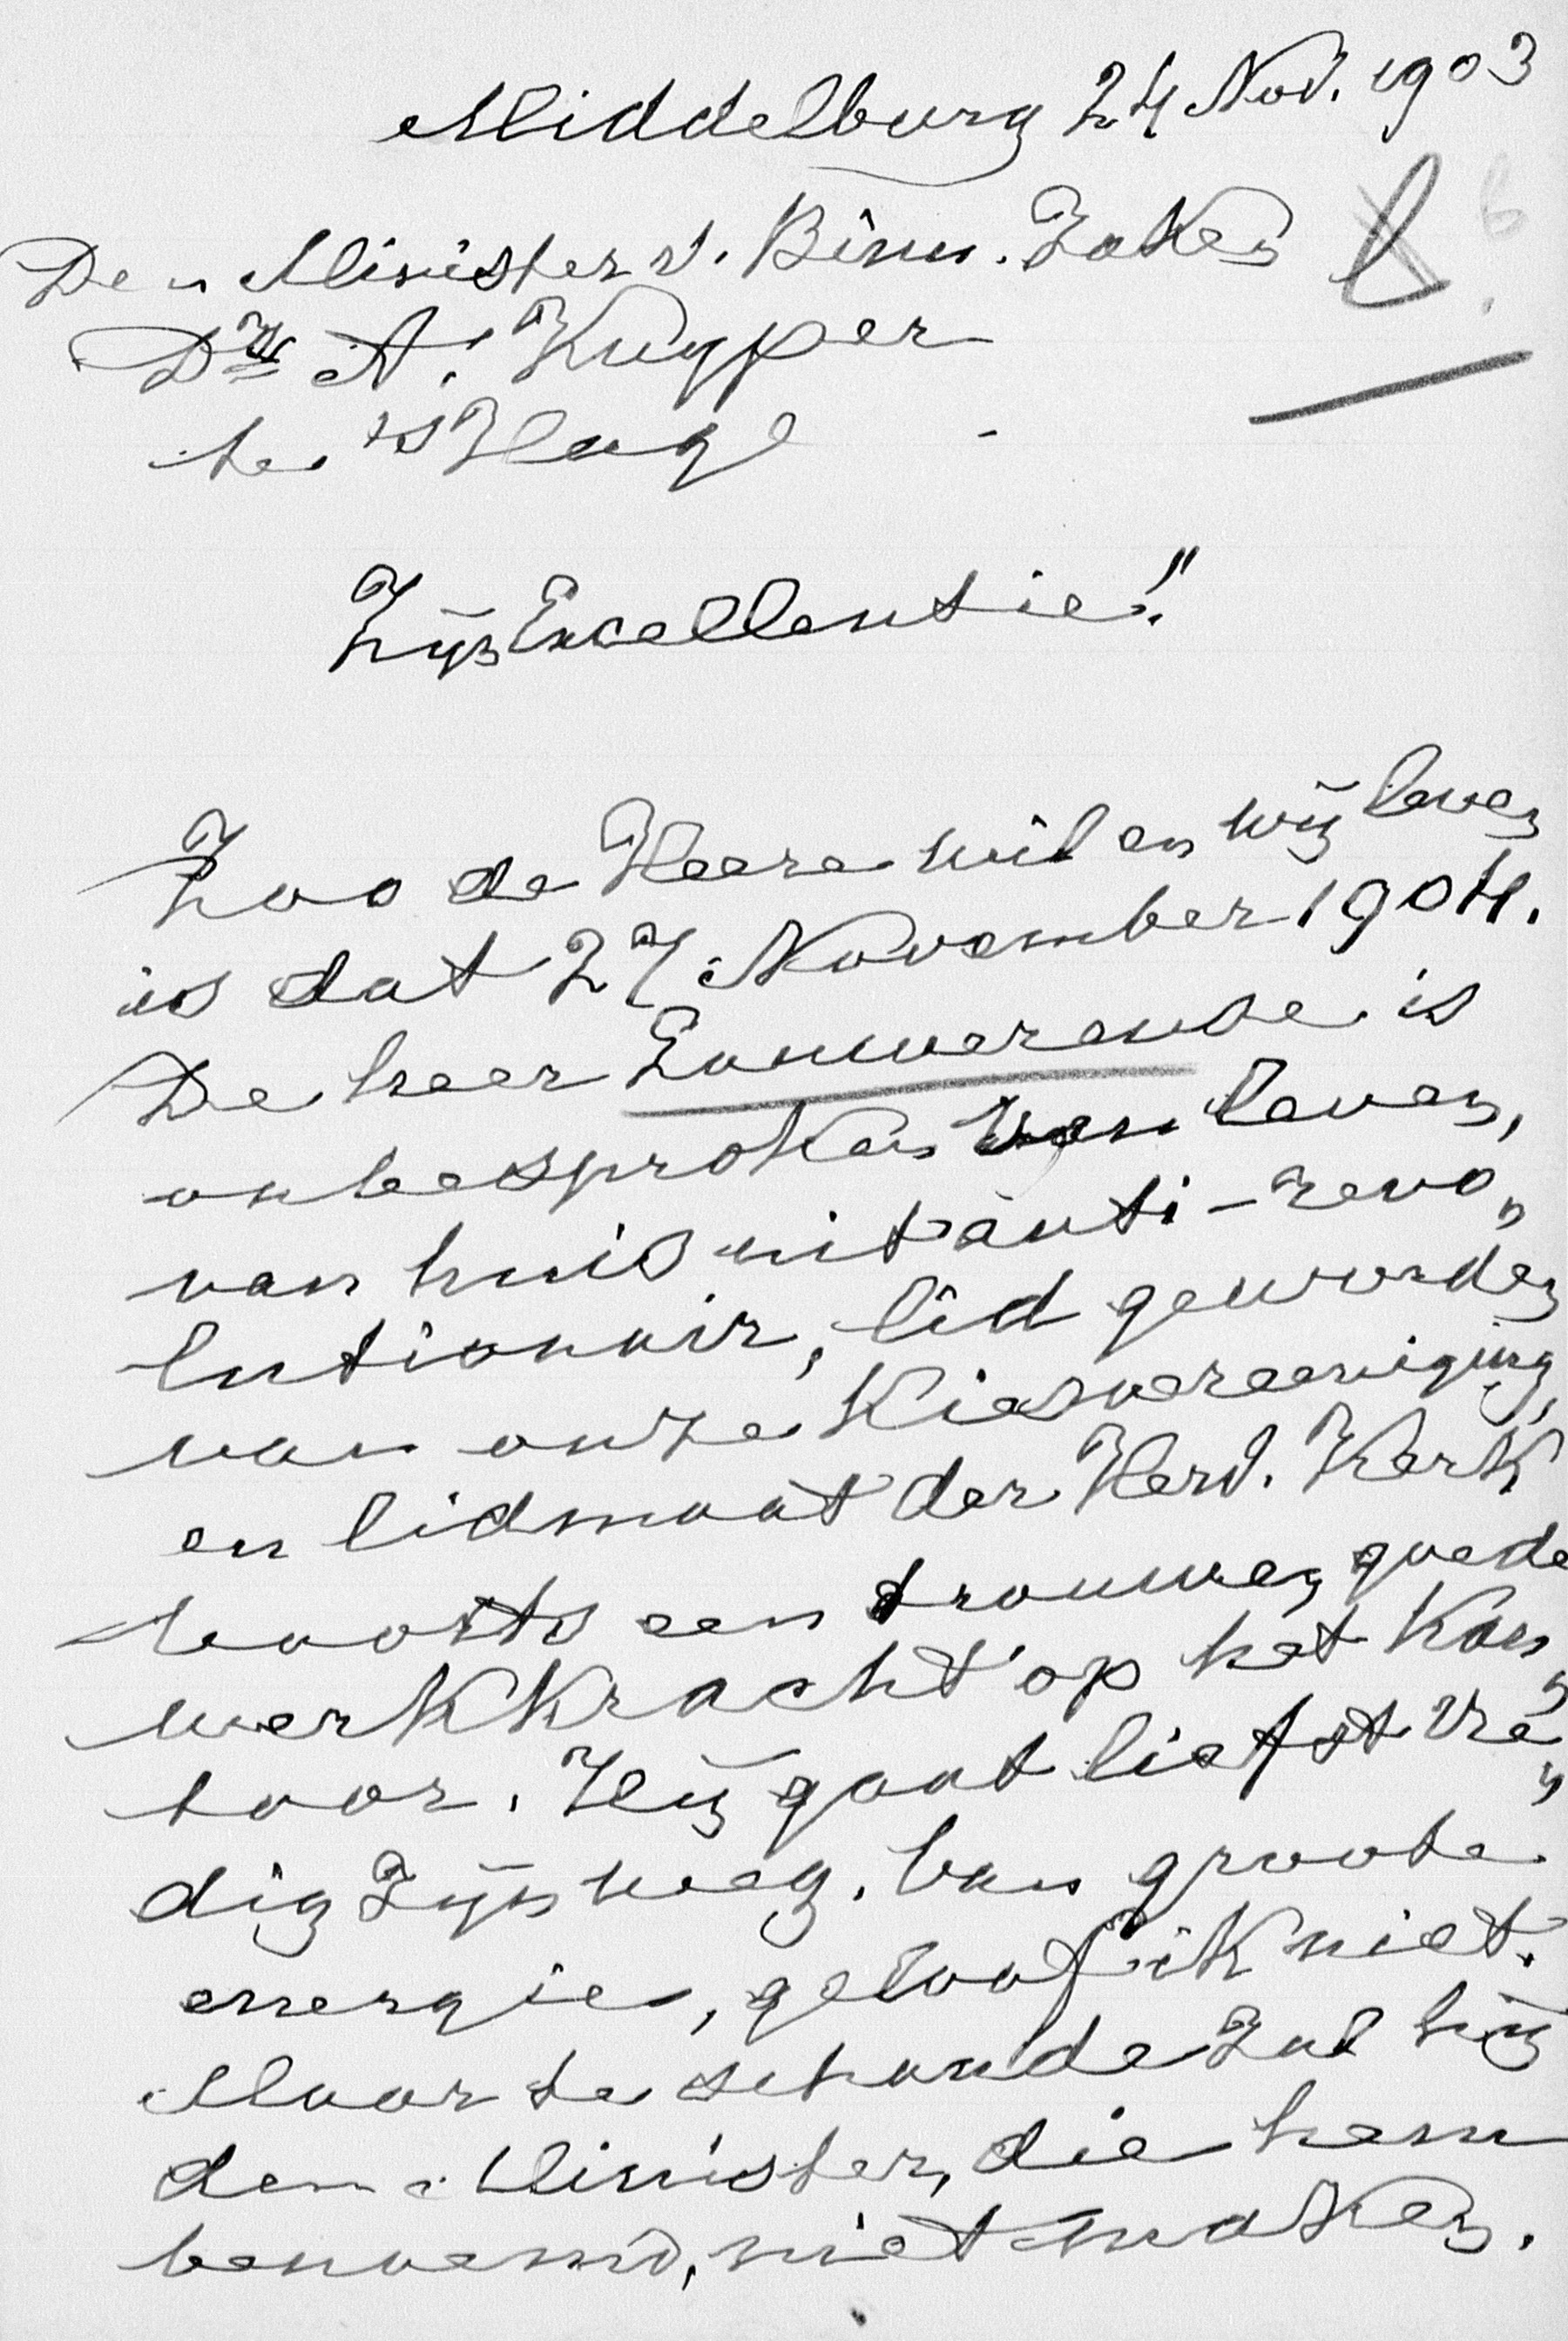 Middelburg 24 Nov. 1903
Den Minister v. Binn. Zaken
Dr. A. Kuyper
te 's Hage
Zijn Excellentie!!
Zoo de Heere wil en wij leven
is dat 27 November 1904.
De heer Louwerense is
onbesproken van leven,
van huis uit anti-revo„
lutionair, lid geworden
van onze Kiesvereeniging,
en lidmaat der Herv. Kerk
voorts een trouwe, goede
werkkracht op het Kan„
toor. Hij gaat liefst vre„
dig Zijn weg. Van groote
energie, geloof ik niet.
Maar te schande Zal hij
den Minister, die hem
benoemd, niet maken.